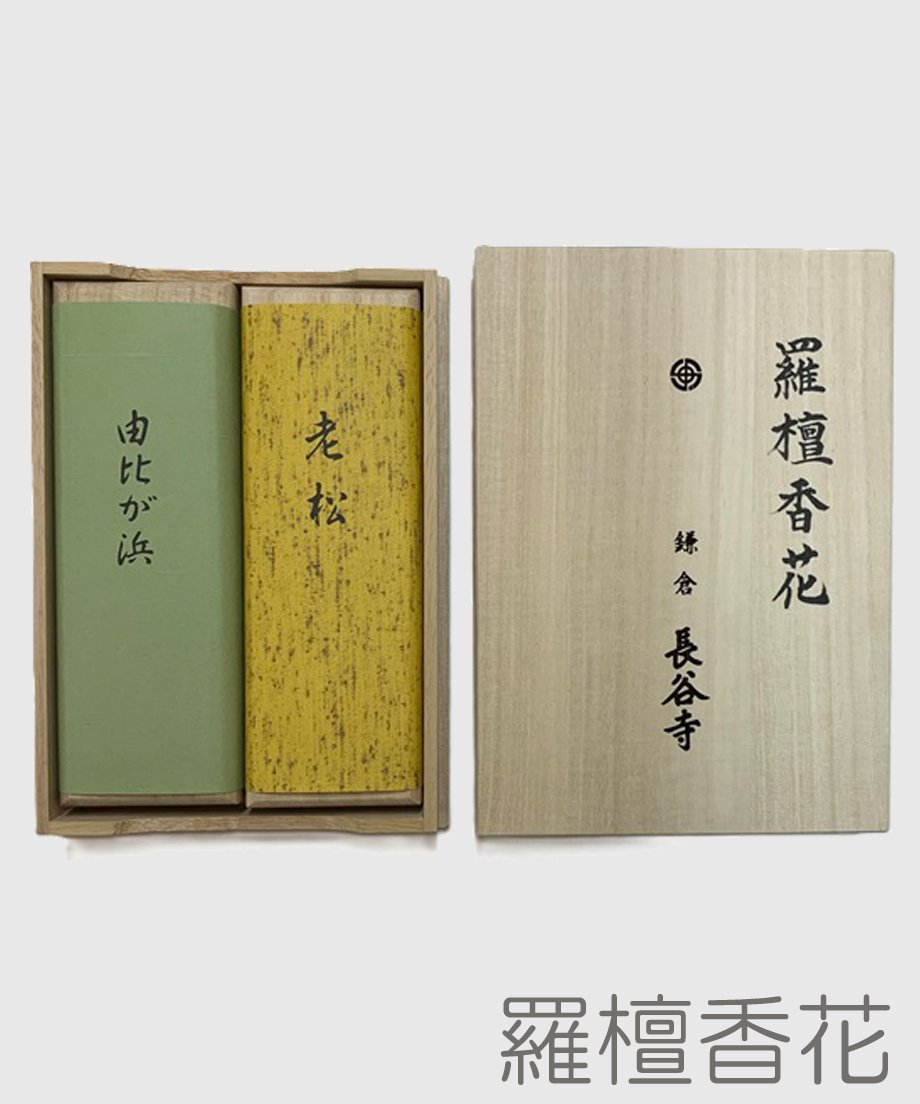 羅檀香花
鎌倉 長谷寺
老松
由比が浜
羅檀香花